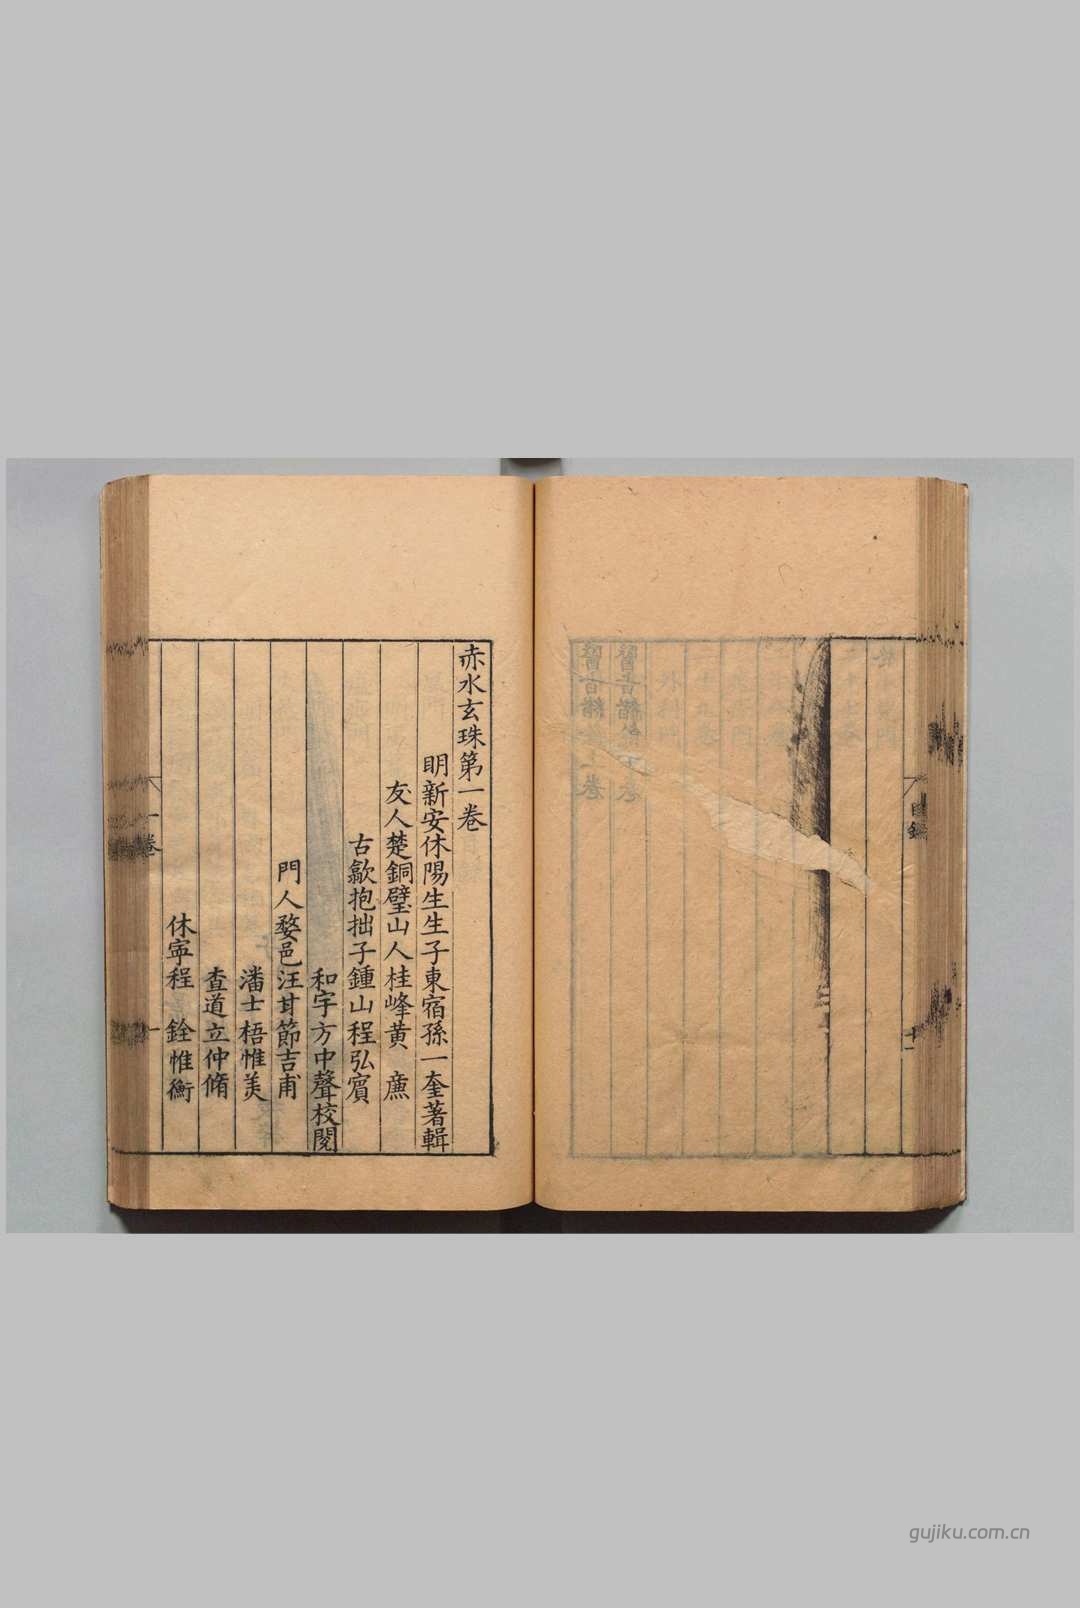 目錄
十一
赤水玄珠第一卷
明新安休陽生生子東宿孫一奎著輯
友人楚銅璧山人桂峰黃 廉
古歙抱拙子鍾山程弘賓
和宇方中聲校閱
門人婺邑汪甘節吉甫
潘士梧惟美
查道立仲脩
休寧程 銓惟衡
一卷
一
gujiku.com.cn